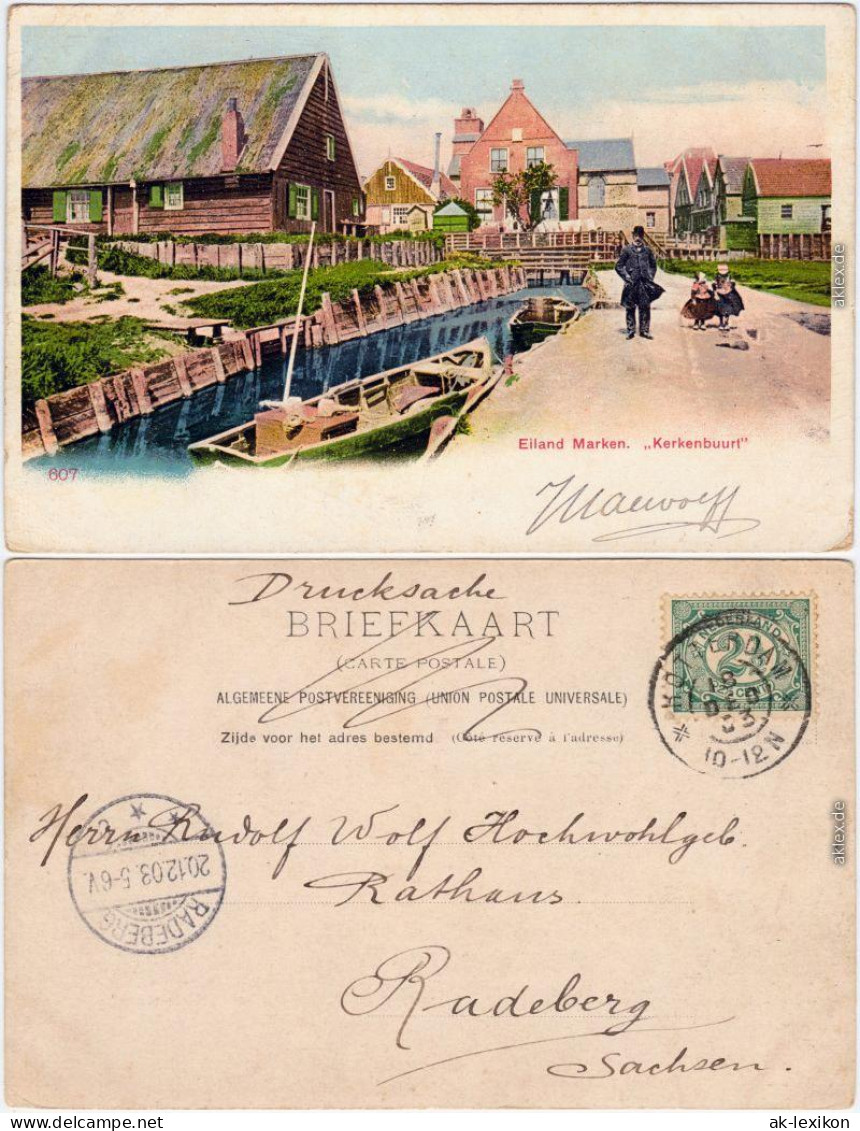 Eiland Marken. „Kerkenbuurt"
607
Drucksache
BRIEFKAART
(CARTE POSTALE)
ALGEMEENE POSTVEREENIGING (UNION POSTALE UNIVERSALE)
Zijde voor het adres bestemd (Côté réservé à l'adresse)
NEDERLAND
2½
CENT
ROTTERDAM
18 DEC
03
10-12 N
Herrn Rudolf Wolf Hochwohlgeb.
Rathaus
Radeberg
Sachsen.
RADEBERG
20.12.03. 5-6V.
aklex.de
aklex.de
www.ak-ansichtskarten.de
ak-lexikon